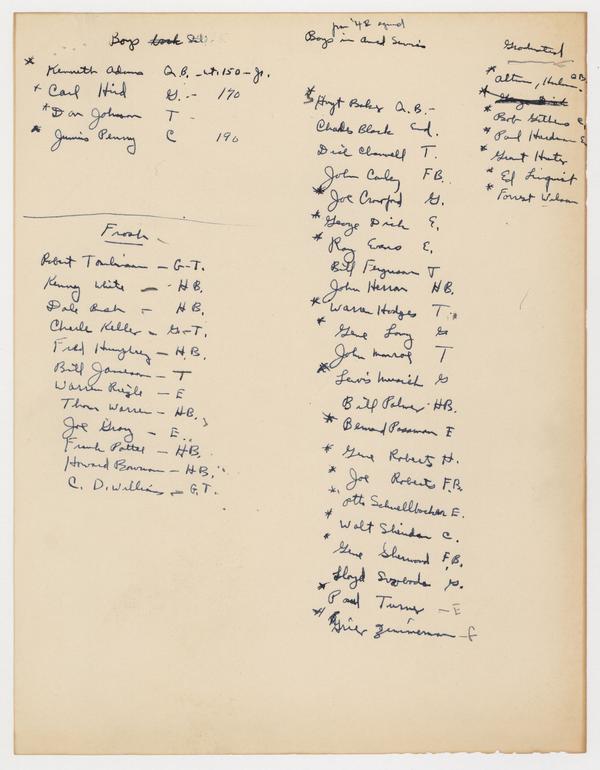 Boys
* Kenneth Adams Q.B. - wt. 150 - Jr.
* Carl Hird G. - 190
* Don Johnson T -
* Junius Penny C 190
Frosh -
Robert Tomlinson - G-T.
Kenny White - HB.
Dale Bash - HB.
Charle Keller - G-T.
Fred Humphrey - H.B.
Bill Jameson - T
Warren Riegle - E
Thom Warren - HB.
Joe Gray - E.
Frank Pattee - HB.
Howard Bowman - HB.
C. D. Williams - G.T.
for '48 squad
Boys in and Seniors
* Hoyt Baker Q.B. -
Charles Black End.
Dick T.
John F.B.
* Joe Crawford G.
* George Dick E.
* Ray Evans E.
Bill Ferguson T
John Herron HB.
* Warren Hodges T.
* Gene Long G
John Monroe T
* Lewis Musick G
Bill Palmer HB.
* Bernard Passman E
* Gene Roberts H.
* Joe Roberts F.B.
* Otto Schnellbacher E.
* Walt Sheridan C.
Gene Sherwood F.B.
Lloyd Svoboda G.
* Paul Turner - E
* Grier Zimmerman - G
Graduated
* QB
* George Dick
* Bob
* Paul Hardman
* Grant Hunter
* Ed Linquist
* Forrest Wilson